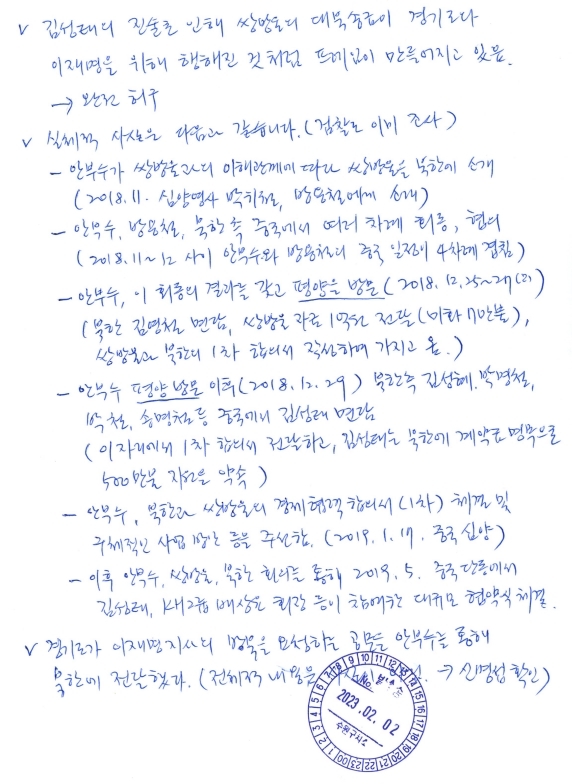 √ 김성태의 진술로 인해 쌍방울의 대북송금이 경기도와
이재명을 위해 행해진 것처럼 프레임이 만들어지고 있음.
→ 완전 허구
√ 실체적 사실은 다음과 같습니다. (검찰도 이미 조사)
- 안부수가 쌍방울과의 이해관계에 따라 쌍방울을 북한에 소개
(2018.11. 심양영사 박치철, 방용철에게 소개)
- 안부수, 방용철, 북한측 중국에서 여러 차례 회동, 협의
(2018.11~12 사이 안부수와 방용철의 중국 일정이 4차례 겹침)
- 안부수, 이 회동의 결과를 갖고 평양을 방문 (2018.12.25~27(?))
(북한 김영철 면담, 쌍방울 자금 1억원 전달 (미화 7만불),
쌍방울과 북한의 1차 합의서 작성하여 가지고 옴.)
- 안부수 평양 방문 이후 (2018.12.29) 북한측 김성혜, 박명철,
박철, 송명철 등 중국에서 김성태 면담
(이 자리에서 1차 합의서 전달하고, 김성태는 북한에 계약금 명목으로
500만불 지원을 약속)
- 안부수, 북한과 쌍방울의 경제협력 합의서 (1차) 체결 및
구체적인 사업 방안 등을 주선함. (2019.1.17. 중국 심양)
- 이후 안부수, 쌍방울, 북한 회의를 통해 2019.5. 중국 단동에서
김성태, KH그룹 배상윤 회장 등이 참여한 대규모 협약식 체결.
√ 경기도가 이재명지사의 방북을 요청하는 공문을 안부수를 통해
북한에 전달했다. (전체적 내용을 → 신명섭 확인)
2023.02.02
수원구치소